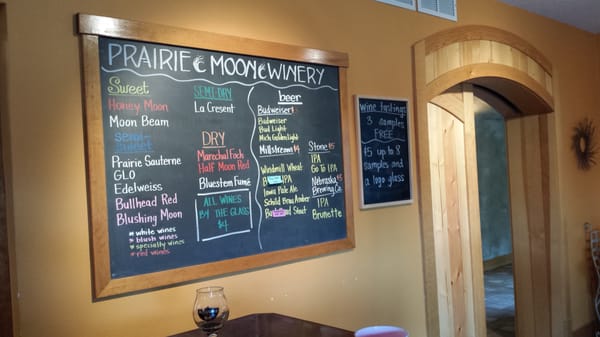 PRAIRIE MOON WINERY
Sweet
Honey Moon
Moon Beam
Semi-Sweet
Prairie Sauterne
GLO
Edelweiss
Bullhead Red
Blushing Moon
* white wines
* blush wines
* specialty wines
* red wines
SEMI-DRY
La Cresent
DRY
Marechal Foch
Half Moon Red
Bluestem Fumé
ALL WINES
BY THE GLASS
$4
beer
Budweiser
Budweiser
Bud Light
Mich Golden Light
Millstream $4
Windmill Wheat
IPA
Iowa Pale Ale
Schild Brau Amber
Stout
Stone $5
IPA
Go To IPA
Nebraska
Brewing Co.
IPA
Brunette
wine tastings
3 samples
FREE
$5 up to 8
samples
and a
logo glass